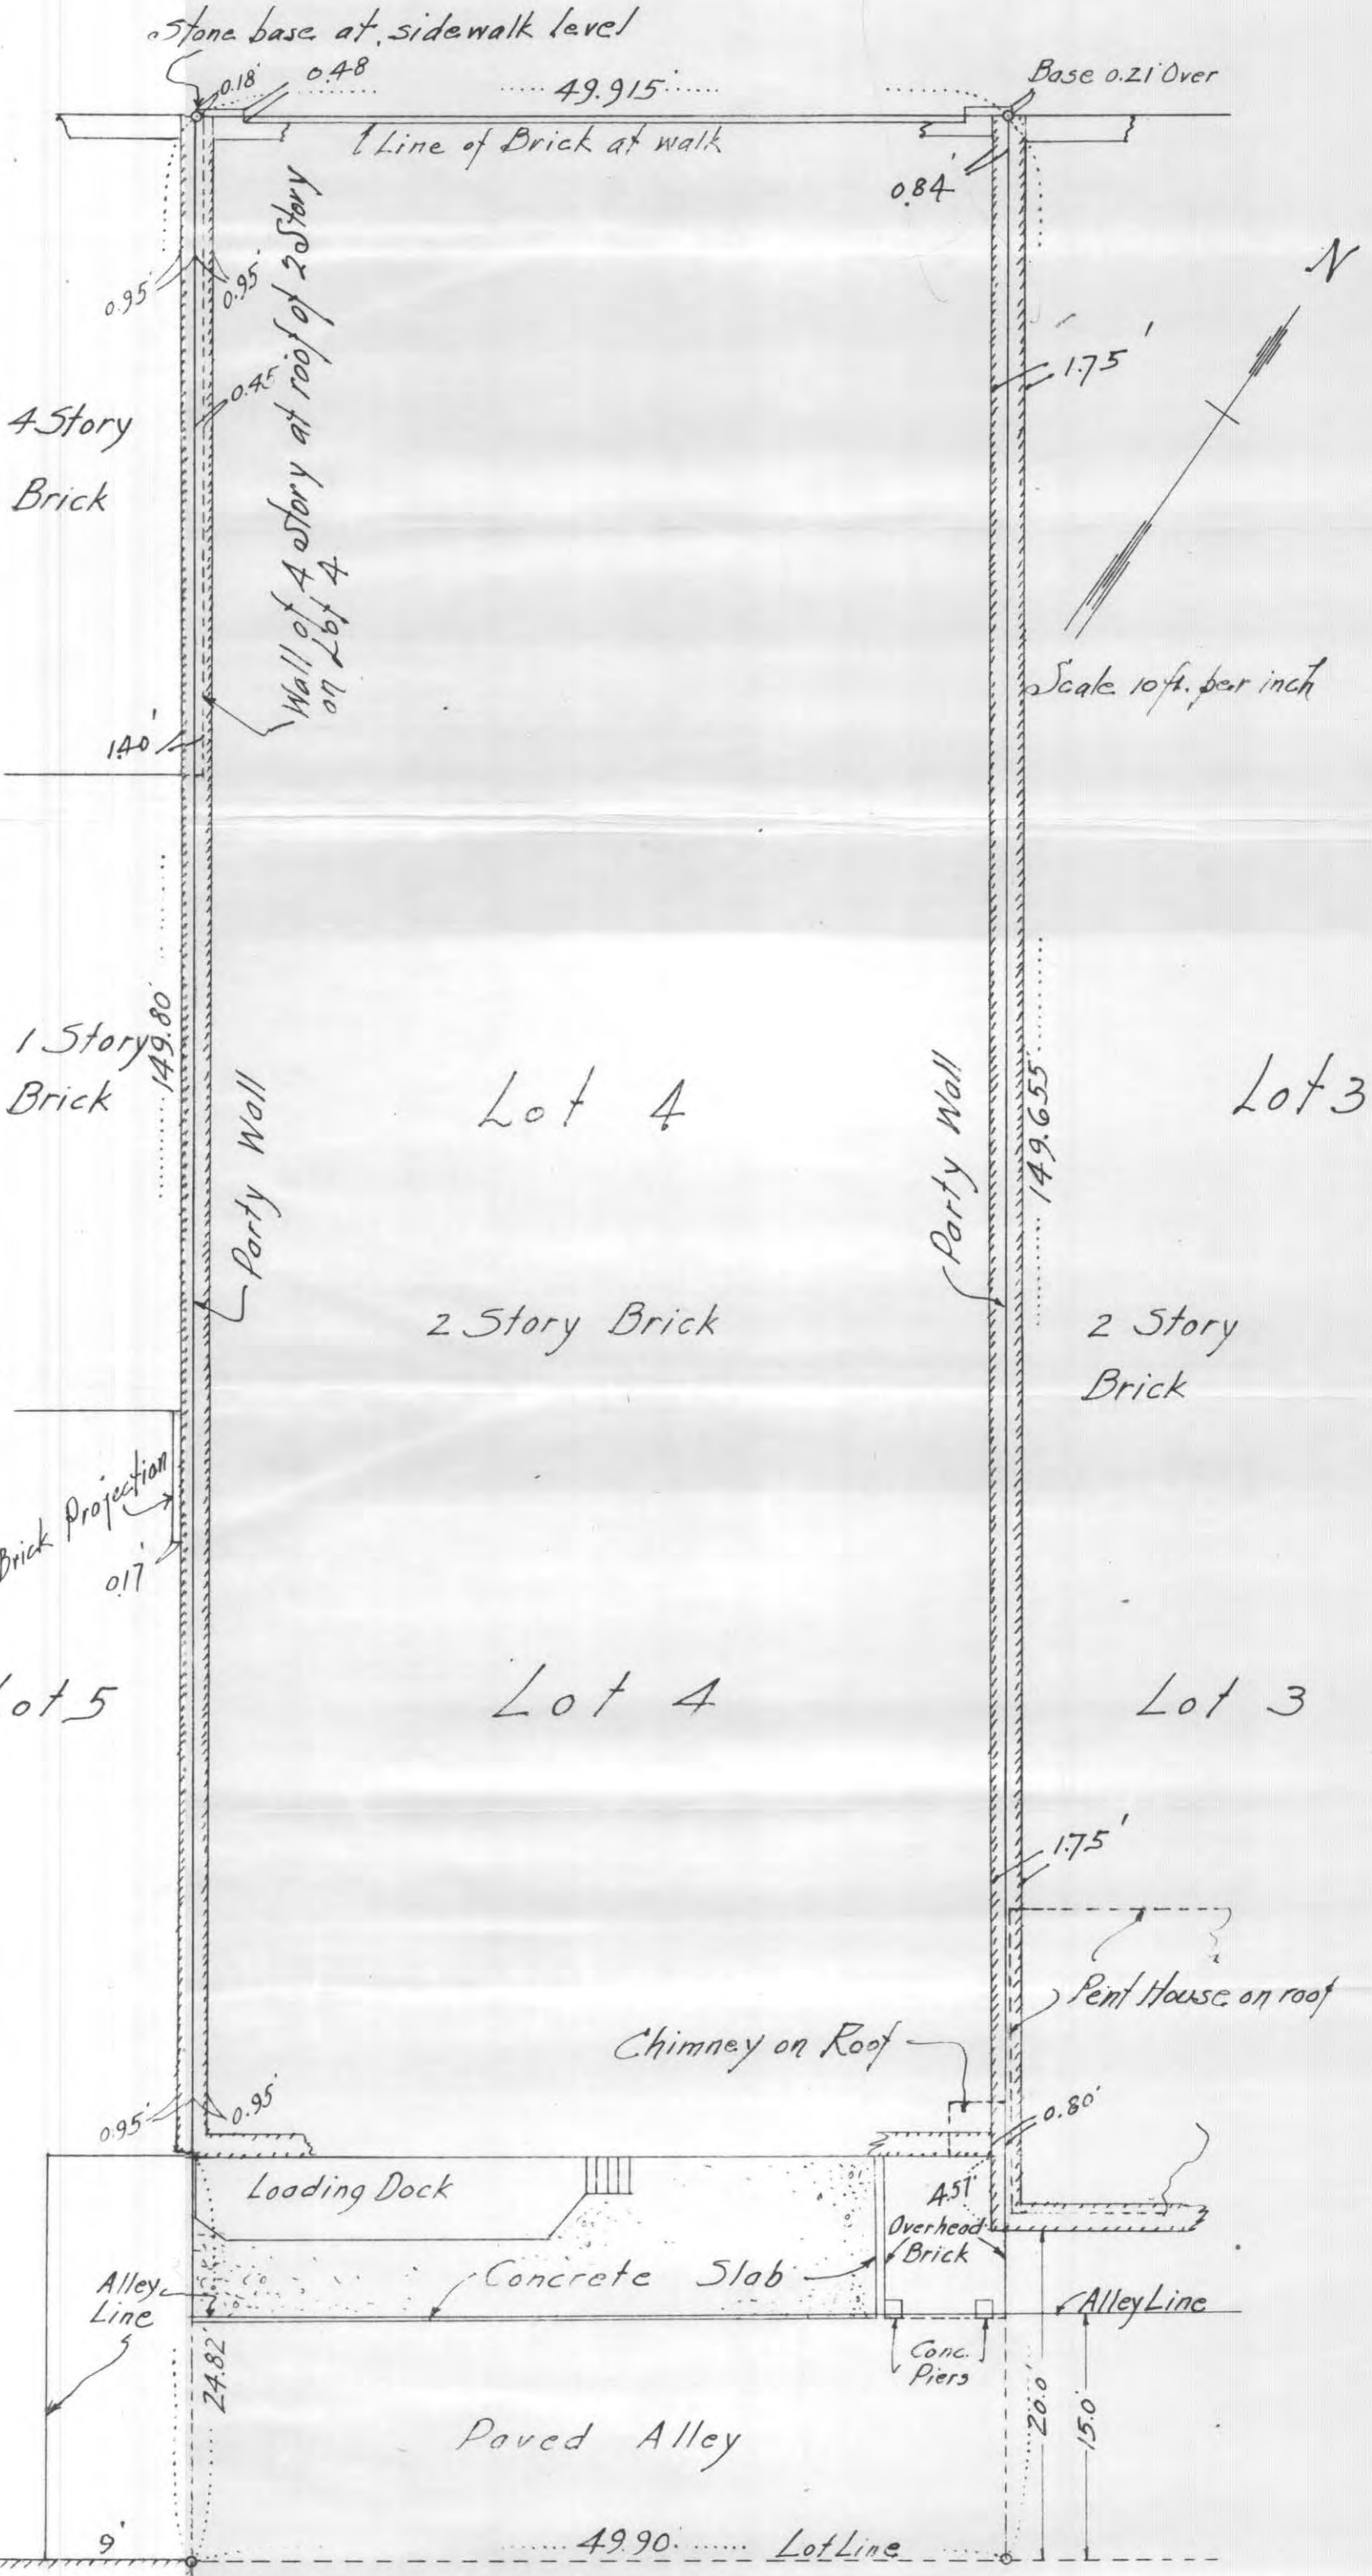 Stone base at sidewalk level
0.18'
0.48
49.915'
Base 0.21' Over
Line of Brick at walk
0.84'
N
0.95'
0.95'
Wall of 4 Story at roof of 2 Story
on Lot 4
1.75'
0.45'
4 Story
Brick
Scale 10 ft. per inch
1.40'
149.80'
1 Story
Brick
Party Wall
Lot 4
Party Wall
149.655'
Lot 3
2 Story Brick
2 Story
Brick
Brick Projection
0.17'
ot 5
Lot 4
Lot 3
1.75'
Pent House on roof
Chimney on Roof
0.95'
0.95'
0.80'
Loading Dock
4.57'
Overhead
Brick
Concrete Slab
Alley
Line
Alley Line
24.82'
Conc.
Piers
20.0'
15.0'
Paved Alley
9'
49.90'
Lot Line